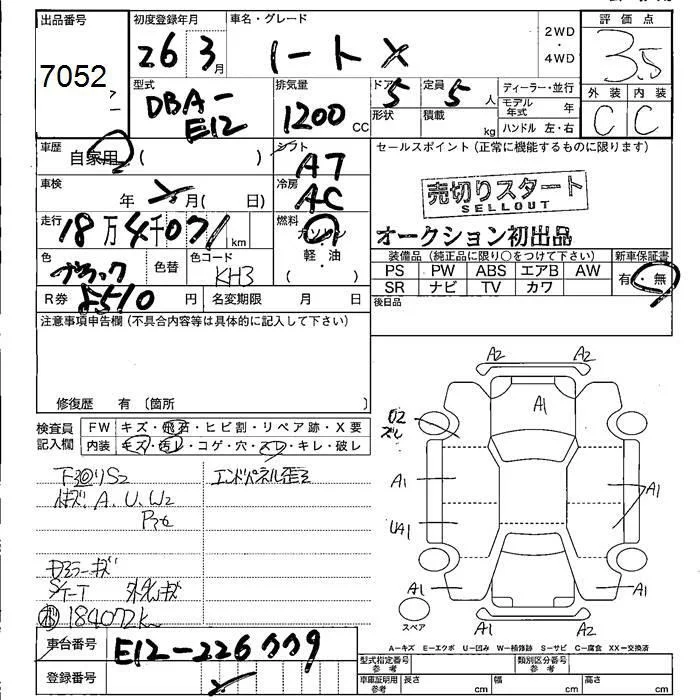 出品番号 初度登録年月 車名・グレード 評価点
7052 26 3月 ノート X 2WD ・ 4WD 3.5
型式 排気量 ドア 定員 ディーラー・並行 外装 内装
DBA-E12 1200 CC 5 5人 モデル年式 年 C C
形状 積載 kg ハンドル 左・右
車歴 シフト セールスポイント (正常に機能するものに限ります)
自家用 ( ) A7
車検 冷房 売切りスタート
年 月( 日) AC SELLOUT
走行 18万4千071km 燃料 ガソリン オークション初出品
軽油
( ) 装備品 (純正品に限り○をつけて下さい) 新車保証書
色 ブラック 色替 色コード KH3 PS PW ABS エアB AW 有・無
SR ナビ TV カワ
R券 8510円 名変期限 月 日 後日品
注意事項申告欄 (不具合内容等は具体的に記入して下さい)
修復歴 有 〔箇所
検査員記入欄 FW キズ・飛石・ヒビ割・リペア跡・X要
内装 キズ・汚レ・コゲ・穴・スレ・キレ・破レ
エンドパネル歪
A、U、W2
Dミラーキズ
184072km
A2 A2
A1
A1 A1
UA1
A1 A1
スペア
A-キズ E-エクボ U-凹み W-補修跡 S-サビ C-腐食 XX-交換済
車台番号 E12-226779
登録番号
型式指定番号 参考 類別区分番号 参考
車庫証明用 参考 長さ cm 幅 cm 高さ cm